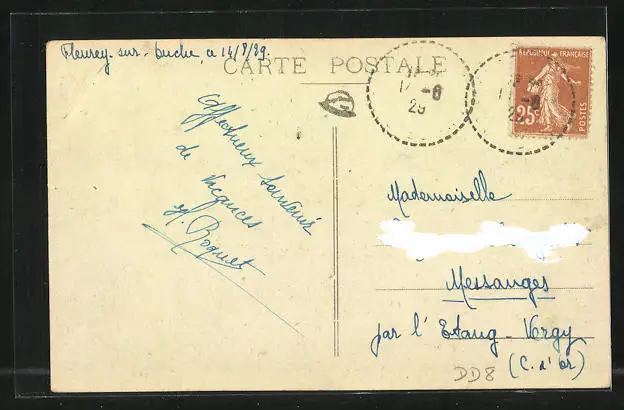 Fleurey-sur-Ouche, ce 14/8/29.
CARTE POSTALE
RÉPUBLIQUE FRANÇAISE
25c
POSTES
-8
29
-8
29
Affectueux souvenir
de
vacances
Mademoiselle
Messanges
par l'Etang-Vergy
(C. d'or)
DD8